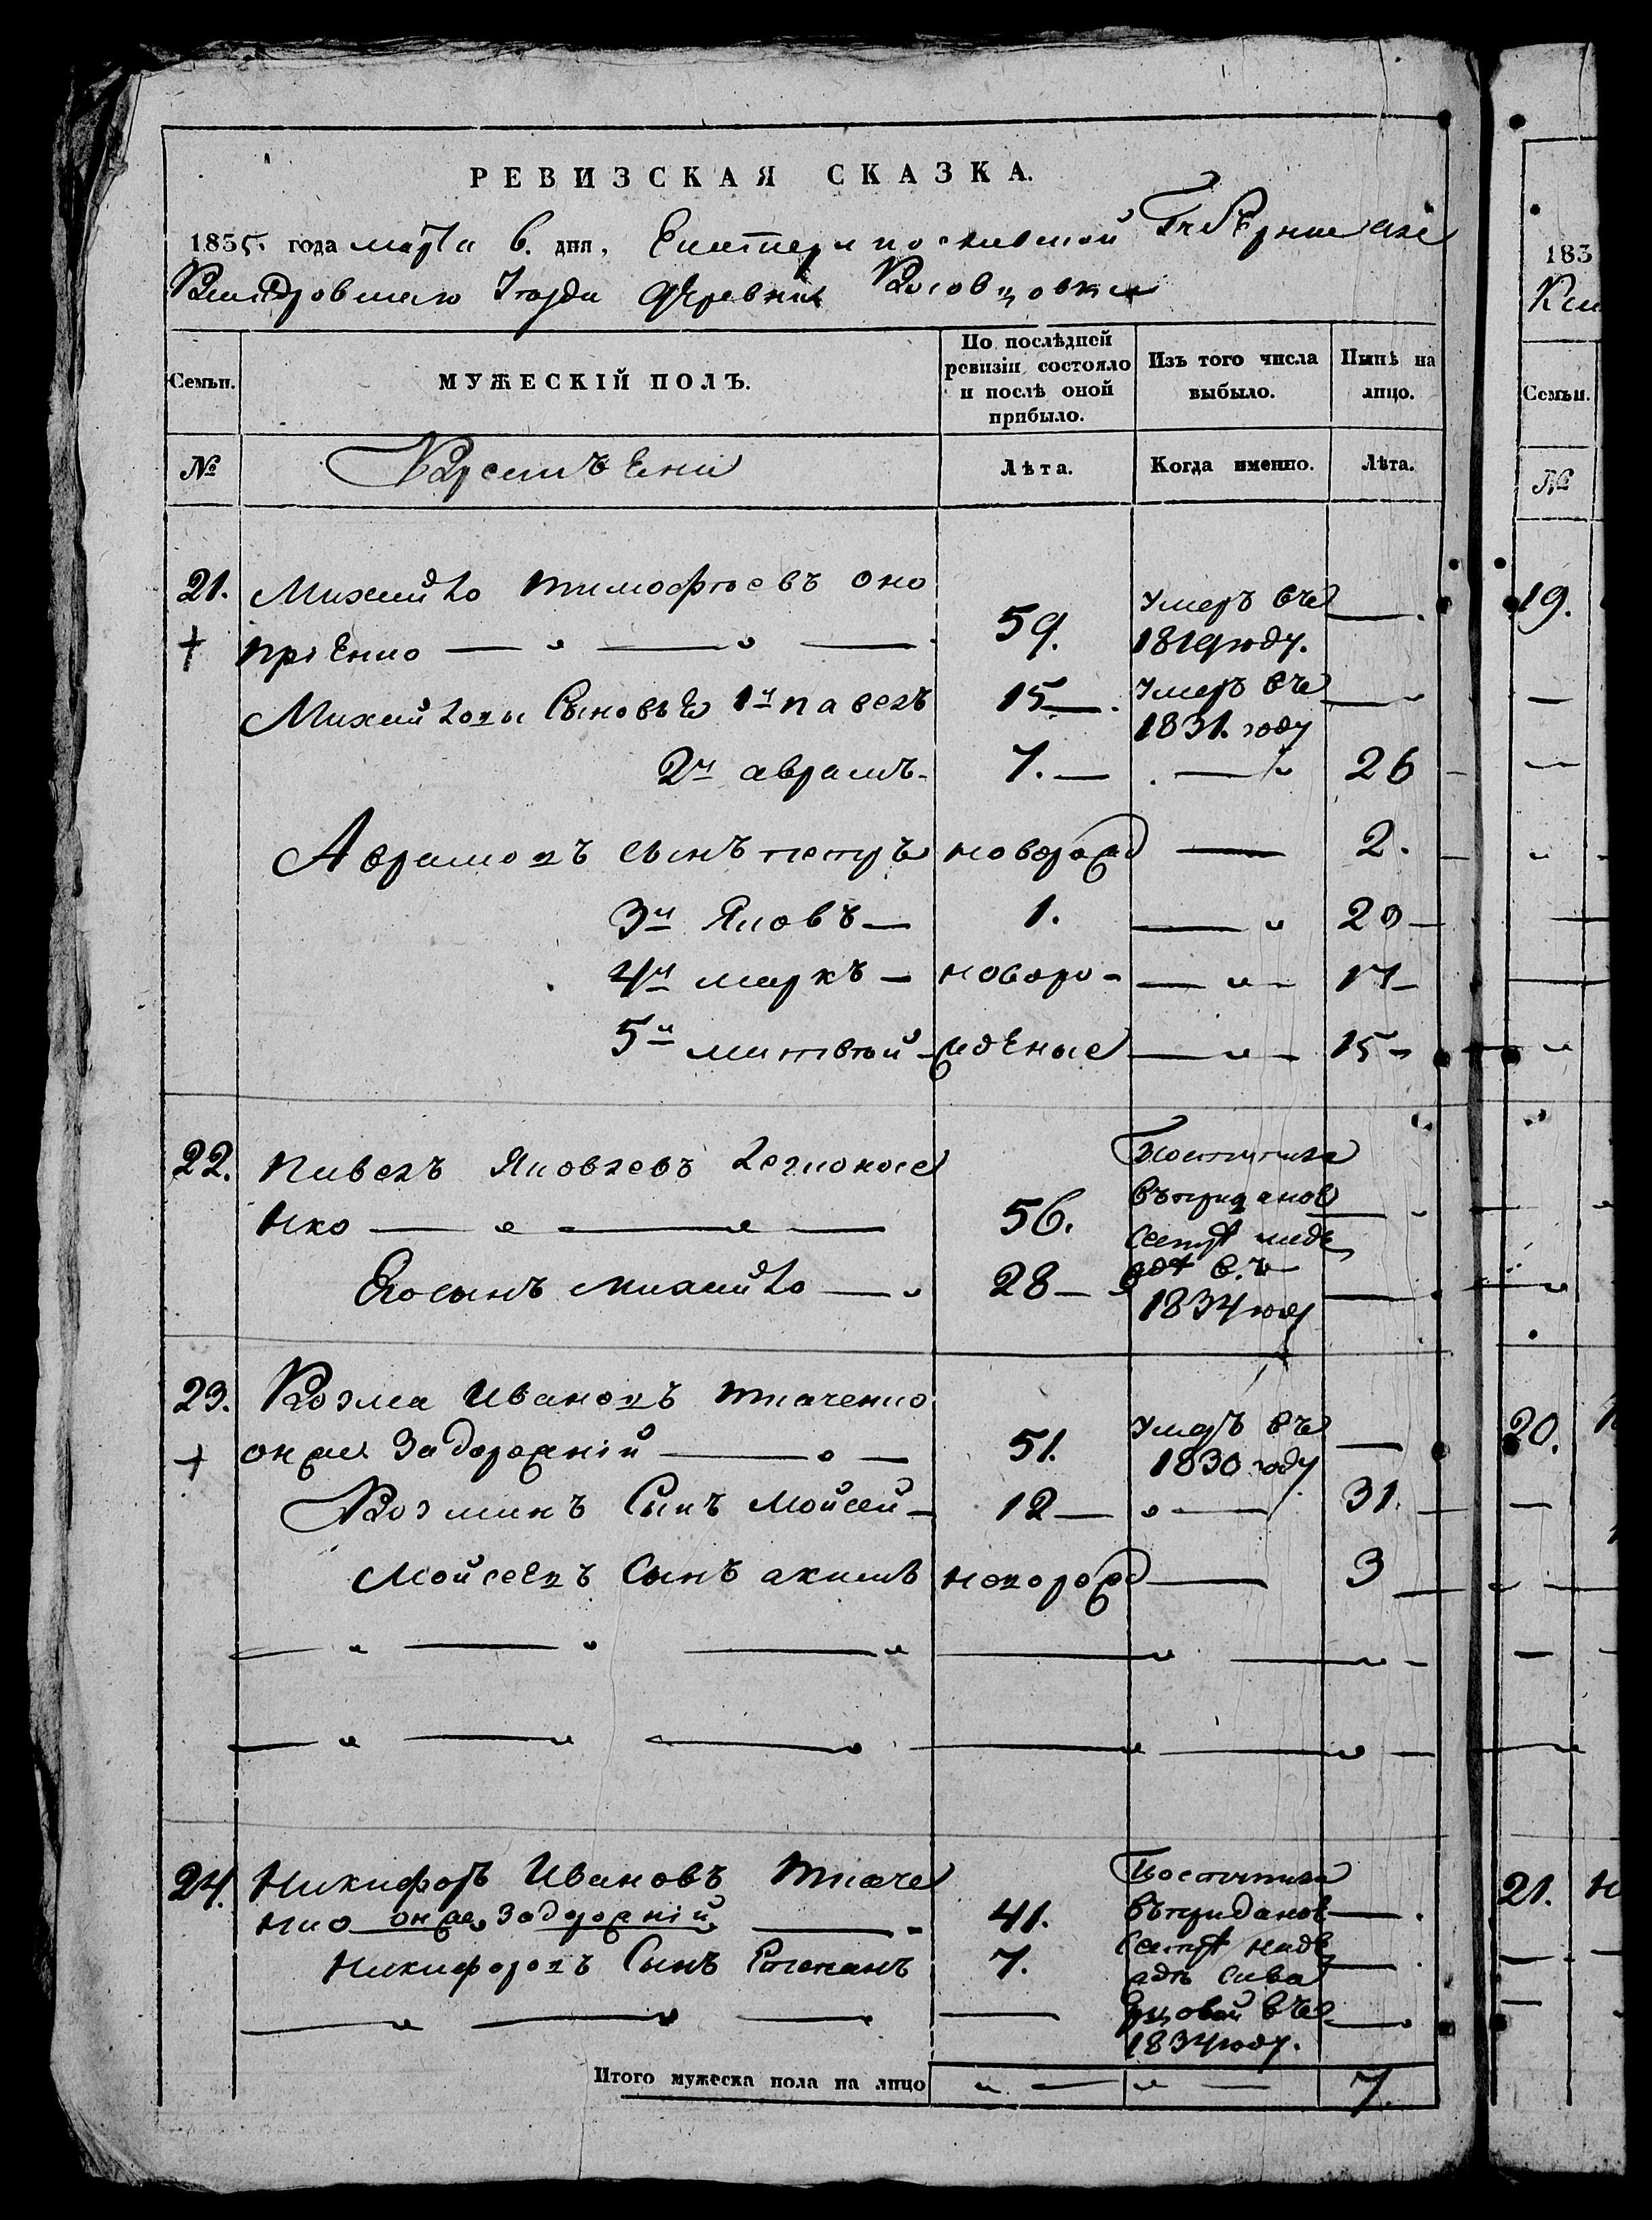 РЕВИЗСКАЯ СКАЗКА.
1835. года марта 6. дня, Екатеринославской Губернии
уезда деревни
Семьи.
МУЖЕСКІЙ ПОЛЪ.
По послѣдней ревизіи состояло и послѣ оной прибыло.
Изъ того числа выбыло.
Нынѣ на лицо.
№
Лѣта.
Когда именно.
Лѣта.
21. Михайло Тимофѣевъ Оно
приенко 59. умеръ въ
1819 году.
Михайловы Сыновья 1й павелъ 15 умеръ въ
1831. году
2й аврамъ 7. 26
Аврамовъ сынъ петръ новорожд 2.
3й Яковъ 1. 20
4й маркъ новоро 17
5й матвѣй жденые 15
22. Павелъ Яковлевъ
нко 56.
Его сынъ михайло 28
1834 году
23. Козма Ивановъ ткаченко
онже Задорожній 51. умеръ въ
1830 году
Козминъ Сынъ Мойсей 12 31.
Мойсеевъ Сынъ акимъ новорожд 3
24. Никифоръ Ивановъ Ткаче
нко онже Задорожній 41. въ приданое
Никифоровъ Сынъ Степанъ 7.
1834 году.
Итого мужеска пола на лицо 7.
183
Семьи.
№
19.
20.
21.